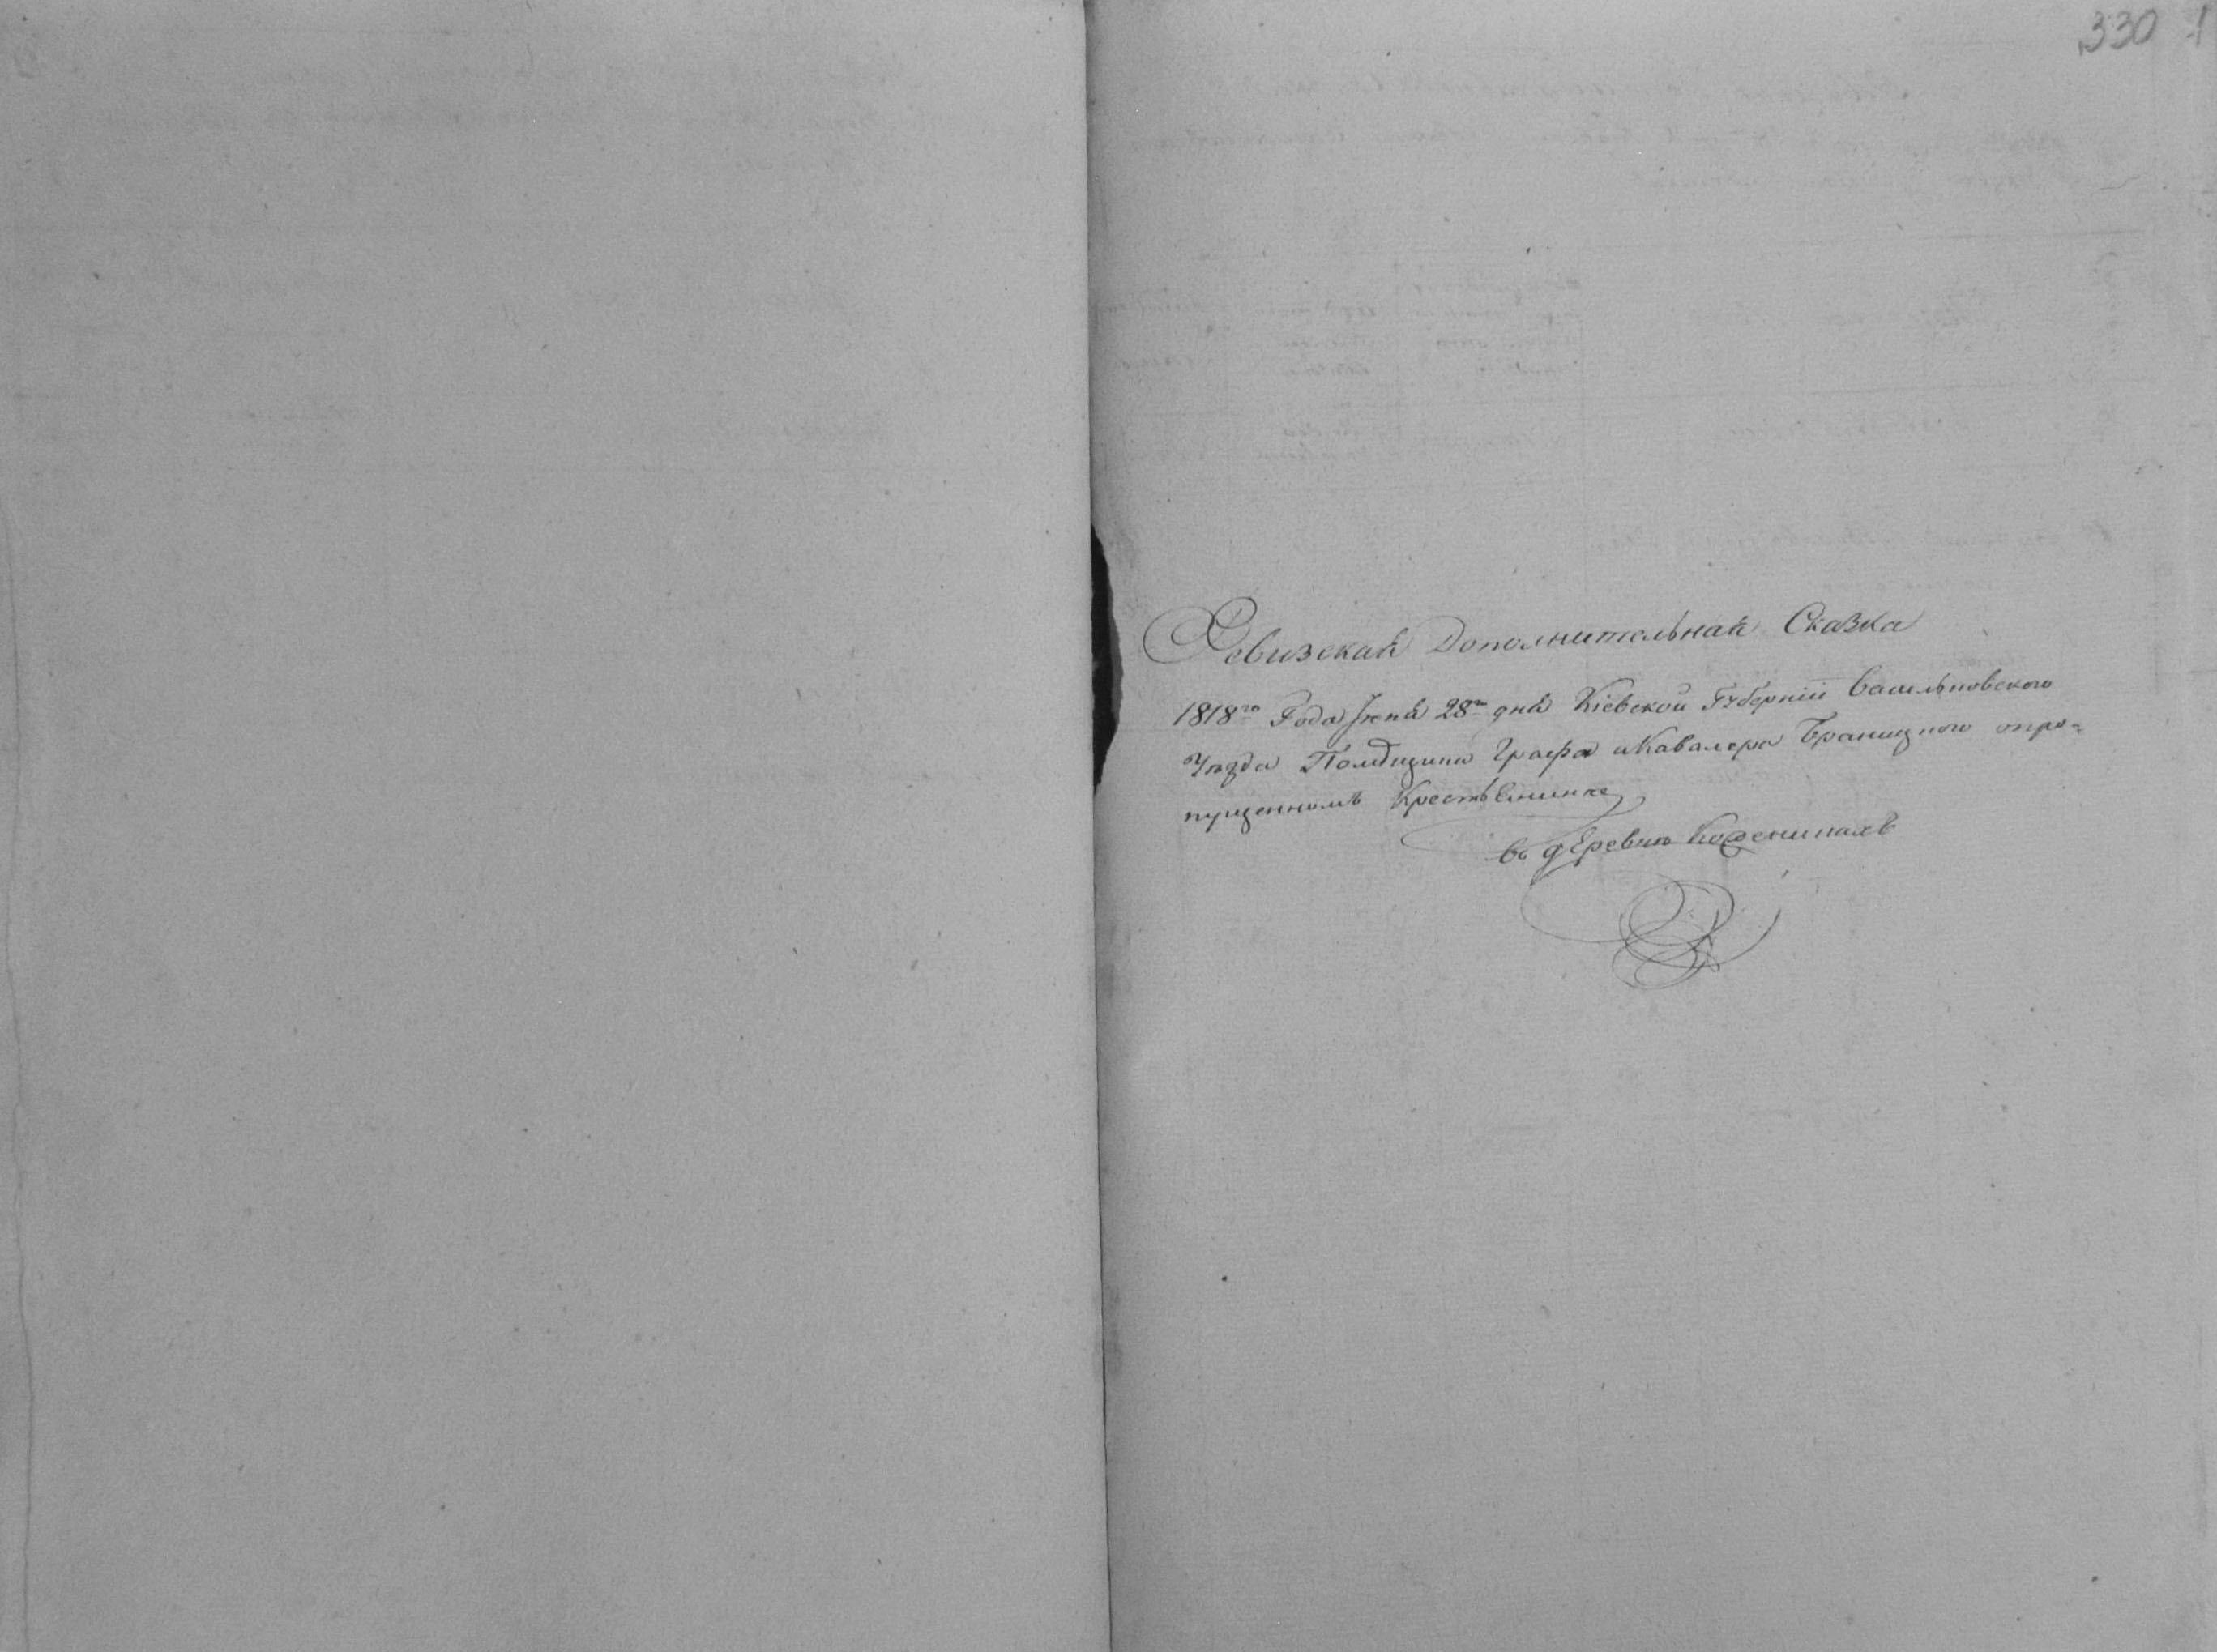 330 1
Ревизская Дополнительная Сказка
1818го Года Іюня 28го дня Кіевской Губерніи Васильковского
Уезда Помещика Графа и Кавалера Браницкого о про=
пущенномъ Крестьянине
въ деревне